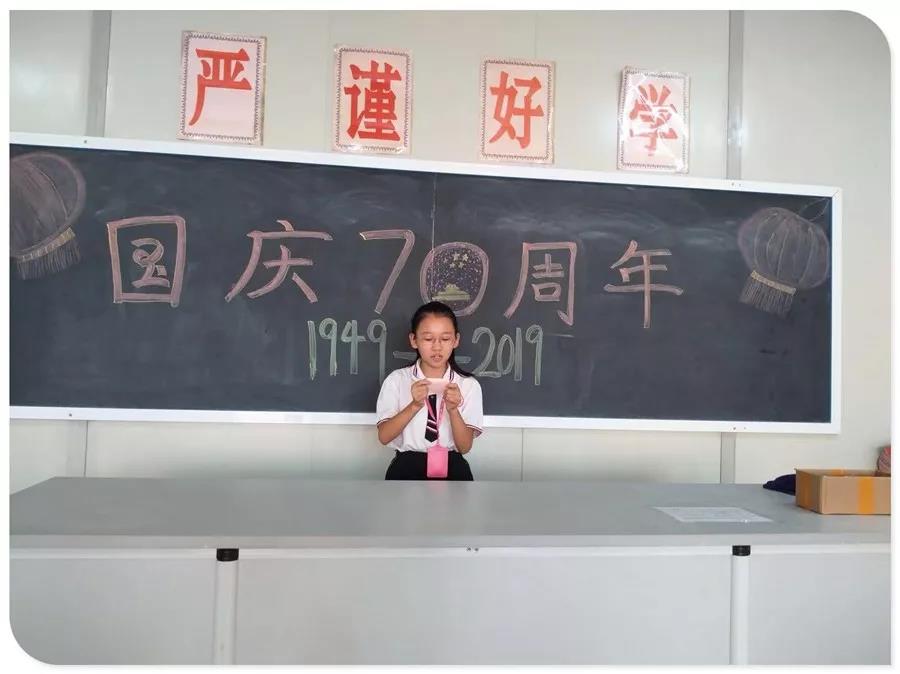 严谨好学
国庆70周年
1949--2019